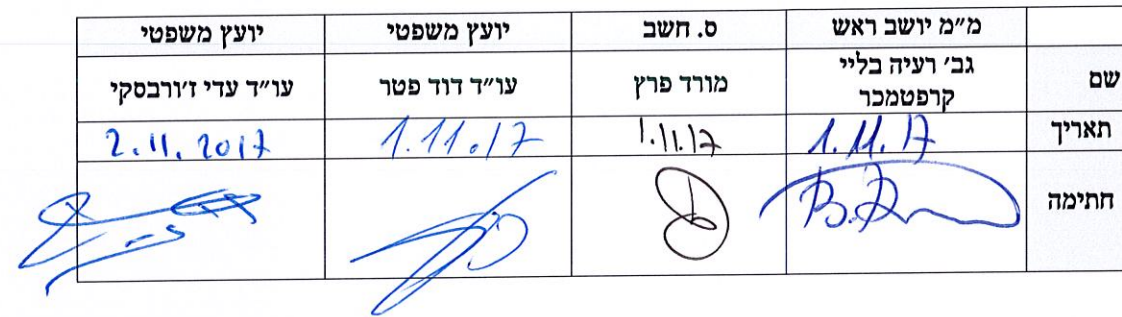 מ״מ יושב ראש	ס. חשב	יועץ משפטי	יועץ משפטי
שם	גב׳ רעיה בליי קרפטמכר	מורד פרץ	עו״ד דוד פטר	עו״ד עדי ז׳ורבסקי
תאריך	1.11.17	1.11.17	1.11.17	2.11.2017
חתימה